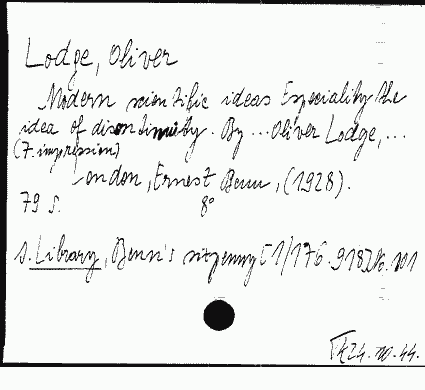 Lodge, Oliver
Modern scientific ideas Especiality the
idea of discontinuity. By ... Oliver Lodge, ...
(7. impression)
London, Ernest Benn, (1928).
79 s. 8°
s. Library, Benn's sixpenny [1/176.918] No. 101